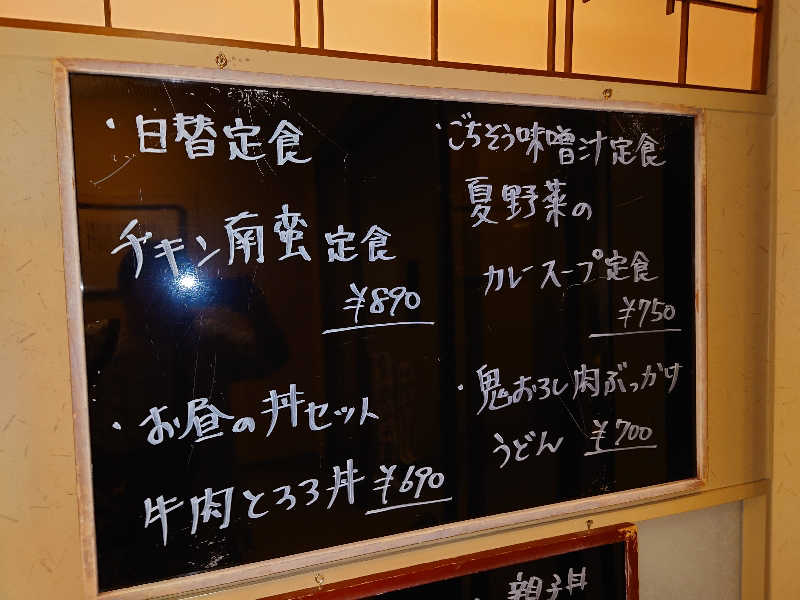 ・日替定食
チキン南蛮定食
¥890
・お昼の丼セット
牛肉とろろ丼 ¥690
・ごちそう味噌汁定食
夏野菜の
カレースープ定食
¥750
・鬼おろし肉ぶっかけ
うどん ¥700
親子丼